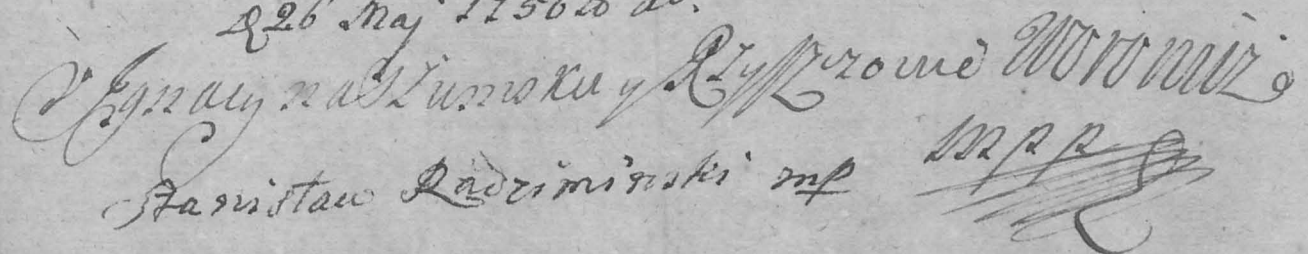 D 26 Maj 1756to
Ignacy na Szumsku y Ryszczowie Woronicz
mpp
Stanisław Radziminski mp